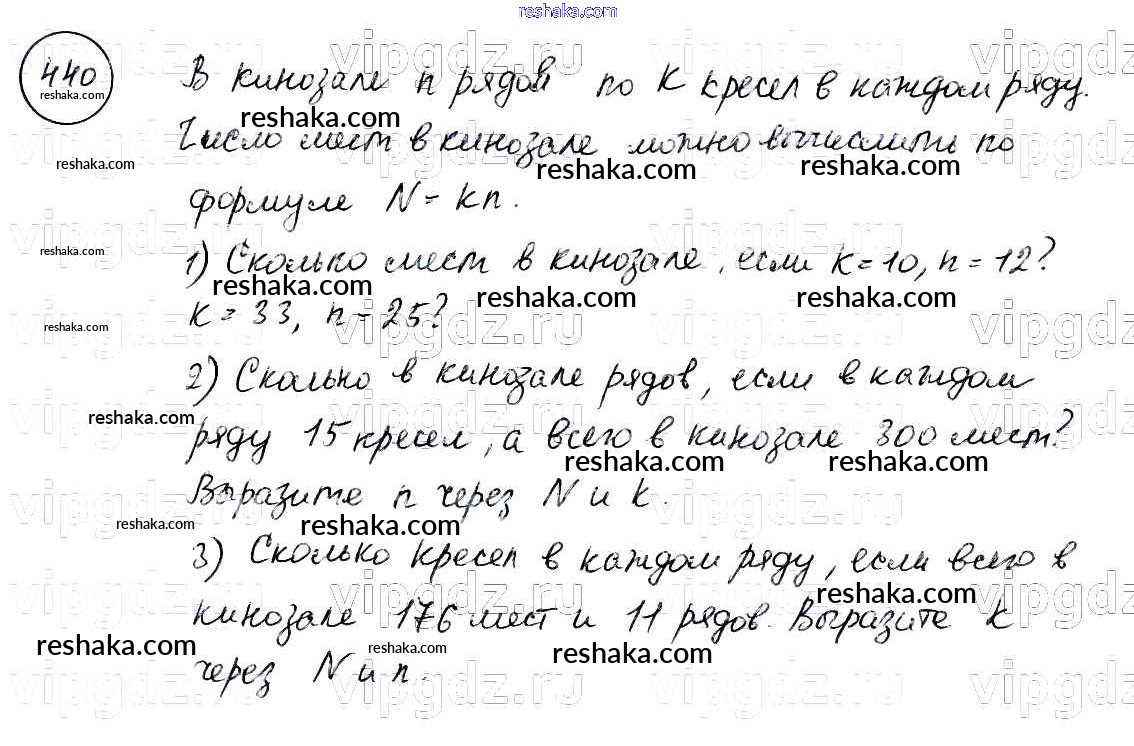 reshaka.com
440
reshaka.com
В кинозале n рядов по k кресел в каждом ряду.
reshaka.com reshaka.com
Число мест в кинозале можно вычислить по
reshaka.com reshaka.com reshaka.com
формуле N = kn.
vipgdz.ru vipgdz.ru vipgdz.ru
reshaka.com
1) Сколько мест в кинозале, если k=10, n=12?
reshaka.com reshaka.com reshaka.com
k = 33, n = 25?
reshaka.com
vipgdz.ru vipgdz.ru vipgdz.ru
2) Сколько в кинозале рядов, если в каждом
reshaka.com
ряду 15 кресел, а всего в кинозале 300 мест?
reshaka.com reshaka.com
Выразите n через N и k.
reshaka.com reshaka.com
3) Сколько кресел в каждом ряду, если всего в
reshaka.com
кинозале 176 мест и 11 рядов. Выразите k
reshaka.com reshaka.com reshaka.com
через N и n.